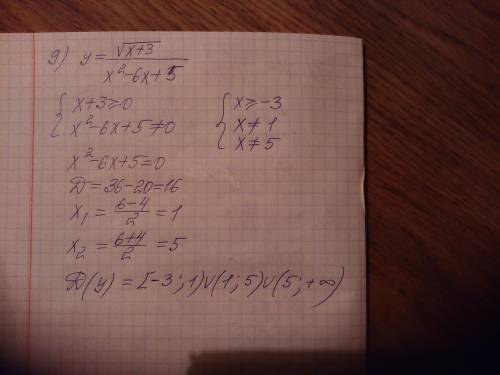 9) y = √(x+3) / (x² - 6x + 5)
{ x+3 ≥ 0
x² - 6x + 5 ≠ 0
{ x ≥ -3
x ≠ 1
x ≠ 5
x² - 6x + 5 = 0
D = 36 - 20 = 16
x₁ = (6-4)/2 = 1
x₂ = (6+4)/2 = 5
D(y) = [-3; 1)∪(1; 5)∪(5; +∞)